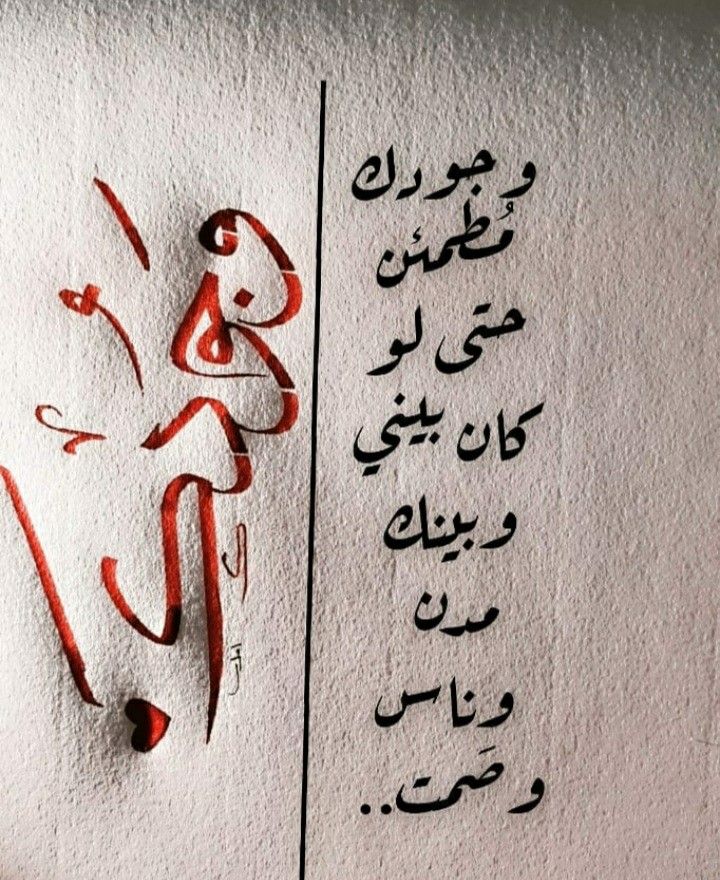 وجودك
مُطمئن
حتى لو
كان بيني
وبينك
مدن
وناس
وصَمت..
وجودك